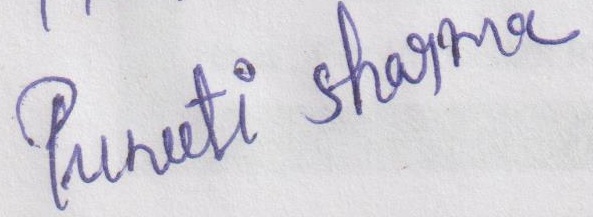 Puneeti sharma